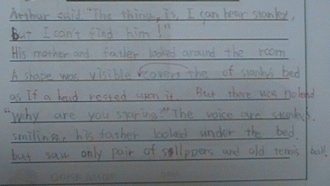 Arthur said "The thing is, I can hear Stanley,
But I can't find him!"
His mother and father looked around the room
A shape was visible covers the of stanley's bed
as If a head rested upon it. But there was no head
"Why are you staring?" The voice are stanley's
smiling, his father looked under the bed.
but saw only pair of slippers and old tennis ball.